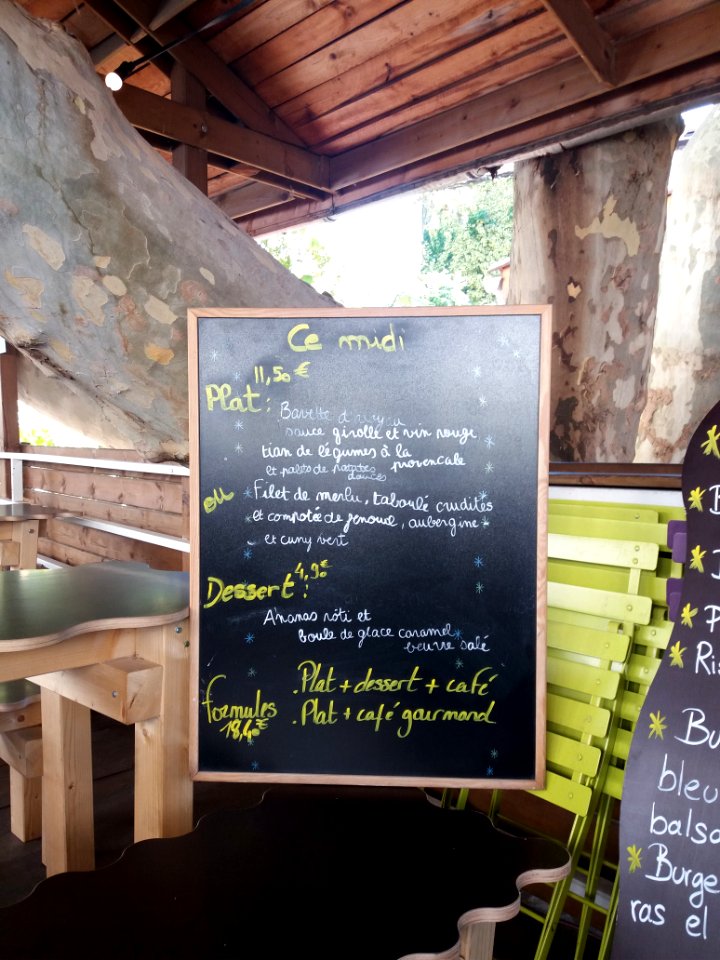 Ce midi
11,50 €
Plat :
Bavette d'
sauce girolle et vin rouge
tian de légumes à la
provencale
et patates
douces
ou
Filet de merlu, taboulé crudités
et compotée de fenouil, aubergine
et curry vert
Dessert 4,90€
:
Ananas rôti et
boule de glace caramel
beurre salé
formules
18,40€
. Plat + dessert + café
. Plat + café gourmand
Ris
Bu
bleu
balsa
Burge
ras el